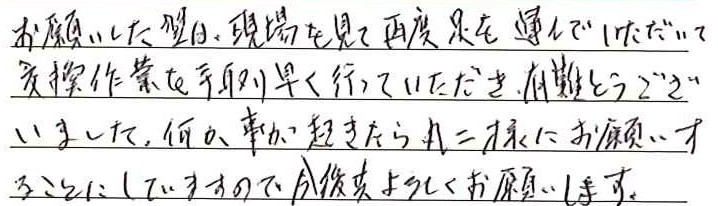 お願いした翌日、現場を見て再度足を運んでいただいて
交換作業を手取り早く行っていただき、有難とうござ
いました。何か事が起きたら丸二様にお願いす
ることにしていますので今後共よろしくお願いします。